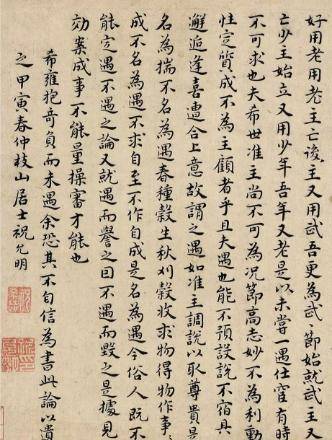 好用老用老主亡後主又用武吾更為武節始就武主又
亡少主始立又用少年吾年又老是以未嘗一遇仕宦有時
不可求也夫希世准主尚不可為況節高志妙不為利動
性定質成不為主顧者乎且夫遇也能不預設說不宿具
邂逅逢喜遭合上意故謂之遇如准主調說以取尊貴是
名為揣不名為遇春種穀生秋刈穀收求物得物作事〻
成不名為遇不求自至不作自成是名為遇今俗人既不
能定遇不遇之論又就遇而譽之因不遇而毀之是據見
効案成事不能量操審才能也
希雍抱奇負而未遇余恐其不自信為書此論以遺
之甲寅春仲枝山居士祝允明